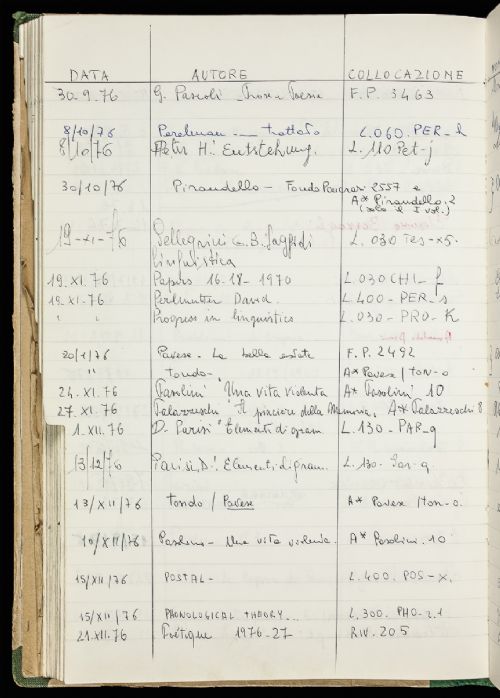 DATA AUTORE COLLOCAZIONE
30.9.76 G. Pascoli Prose e Poesie F.P. 3463
8/10/76 Perelman — trattato L.060.PER-
8/10/76 Peter H. Entstehung. L.110 Pet-j
30/10/76 Pirandello - Fondo 2557 e
A* Pirandello.2
(solo il I vol.)
19-XI-76 Pellegrini G.B. Saggi di L. 030 -
linguistica
19.XI.76 Papers 16-18-1970 L.030 CHI-f
19.XI.76 Perlmutter David. L.400-PER-s
" " Progress in linguistics L.030-PRO-K
20/1/76 Pavese. La bella estate F.P. 2492
" tondo- A* Pavese/ton-o
24.XI.76 Pasolini "Una vita violenta A* Pasolini 10
27.XI.76 Palazzeschi "Il piacere della Memoria, A* Palazzeschi 8
1.XII.76 D. Parisi "Elementi di gram. L.130-PAR-g
13/12/76 Parisi, D. Elementi di gram. L.130- Par-g.
13/XII/76 tondo / Pavese A* Pavese /ton-o.
/XII/76 Pasolini - Una vita violenta. A* Pasolini. 10
15/XII/76 POSTAL- L.400. POS-x.
15/XII/76 PHONOLOGICAL THEORY... L.300. PHO-2.1
21.XII.76 Poétique 1976-27 RIV.205